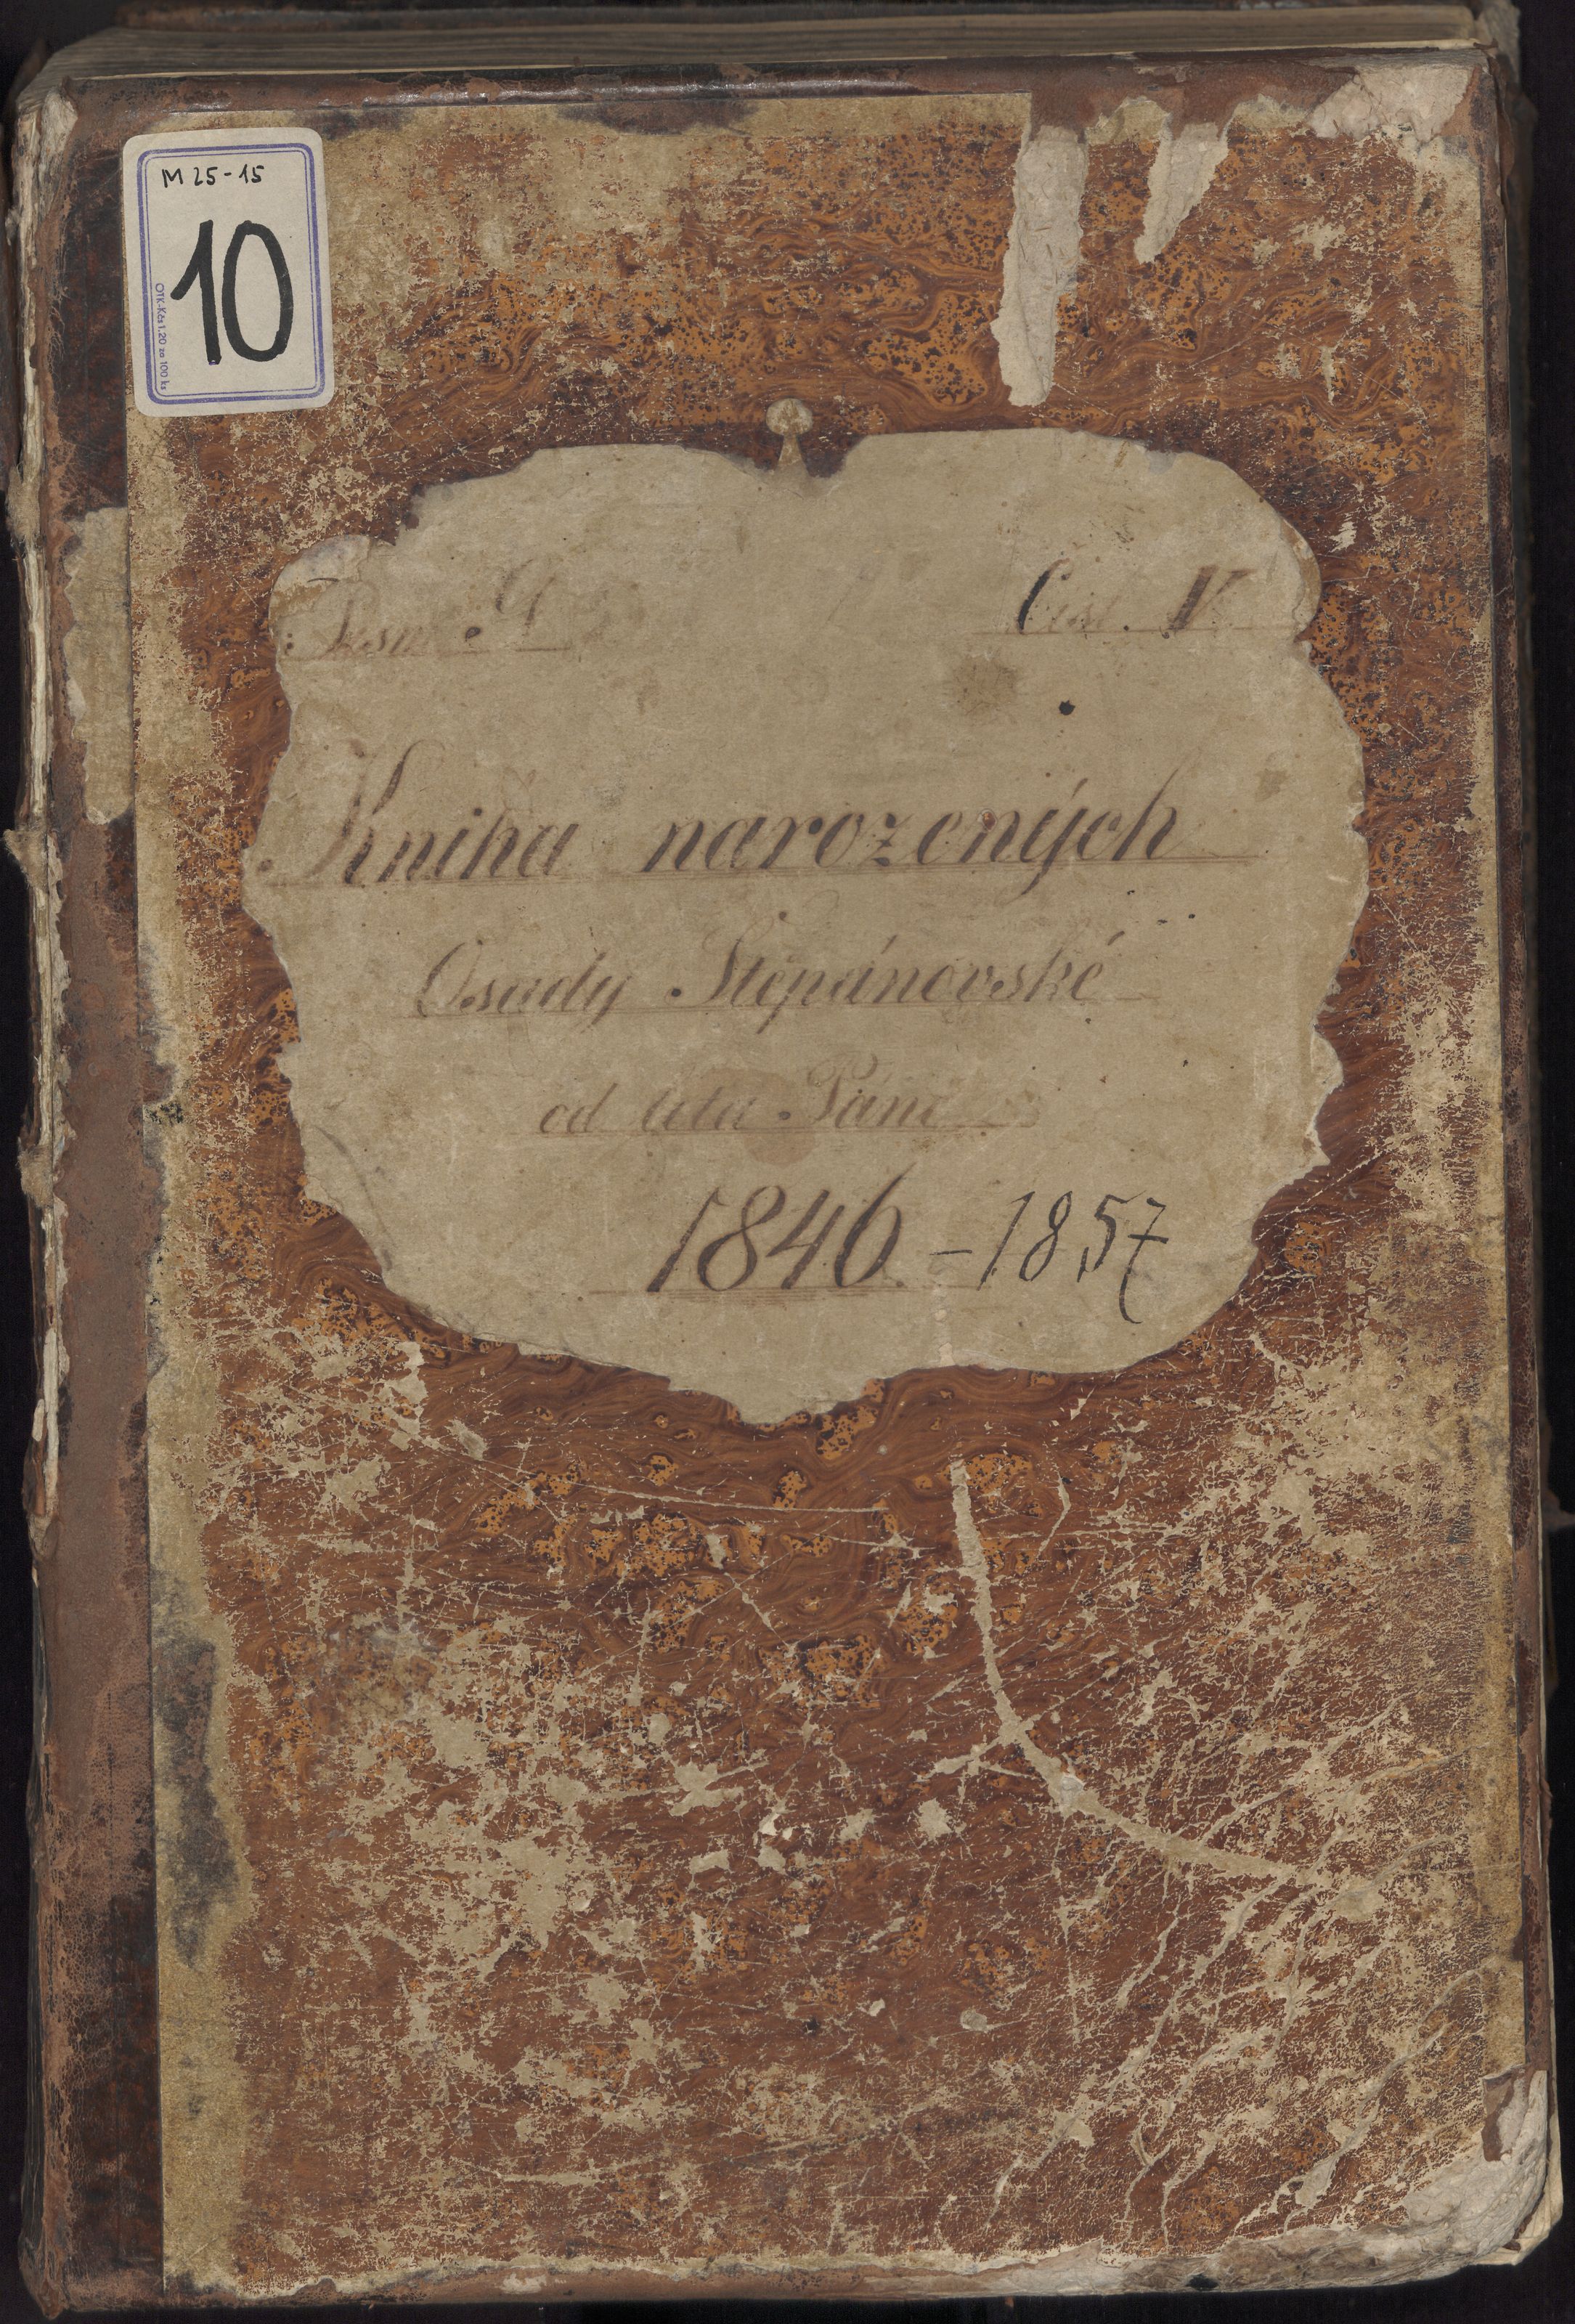 M 25-15
10
OTK-Kčs 1.20 za 100 ks
Čísl. V
Kniha narozených
Osady Štěpánovské
od léta Páně
1846 - 1857